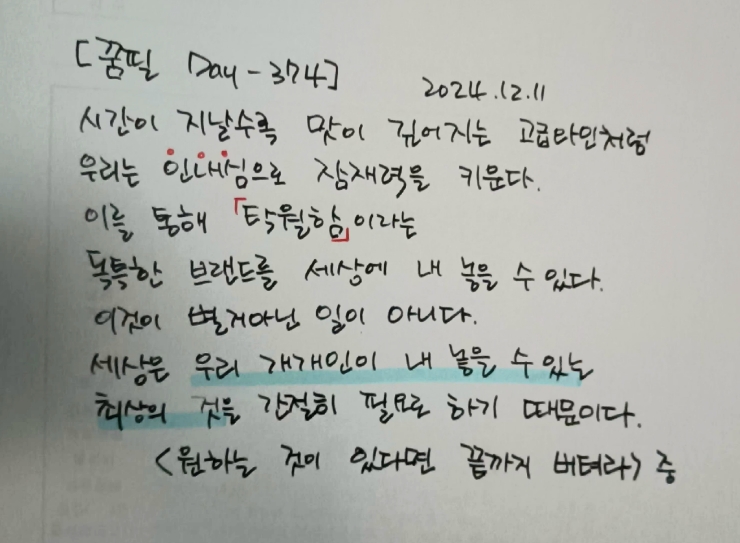 [꿈필 Day-374]
2024.12.11
시간이 지날수록 맛이 깊어지는 고급와인처럼
우리는 인내심으로 잠재력을 키운다.
이를 통해 「탁월함」이라는
독특한 브랜드를 세상에 내 놓을 수 있다.
이것이 별거아닌 일이 아니다.
세상은 우리 개개인이 내 놓을 수 있는
최상의 것을 간절히 필요로 하기 때문이다.
<원하는 것이 있다면 끝까지 버텨라> 중